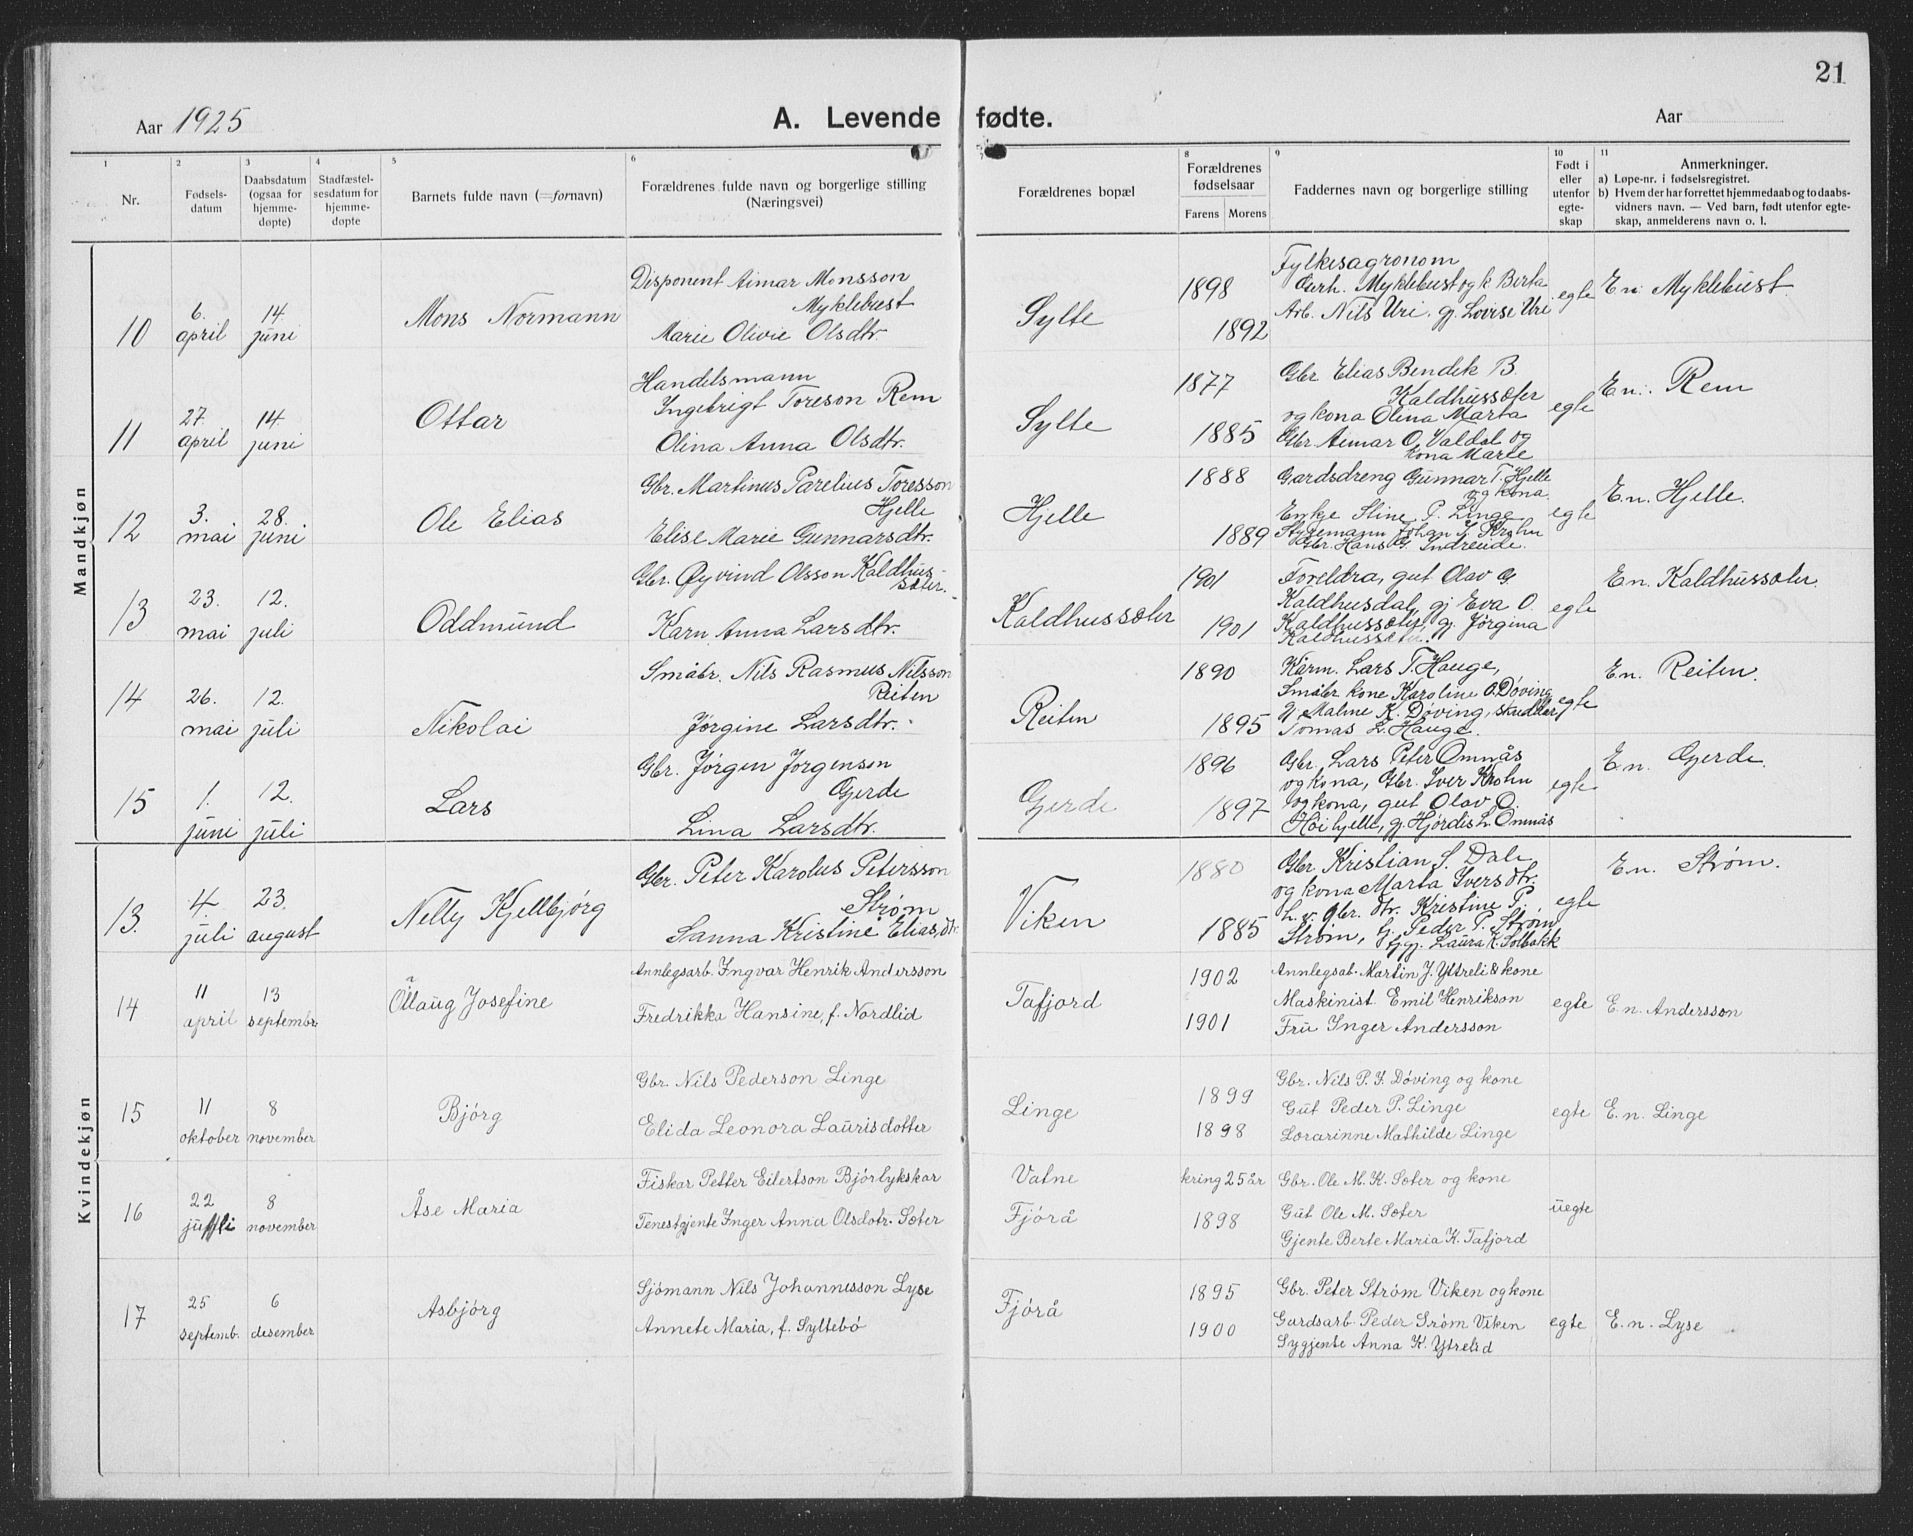 21
Aar 1925
A. Levende fødte.
Aar
1 2 3 4 5 6 8 9 10 11
Nr.
Fødsels-
datum
Daabsdatum
(ogsaa for
hjemme-
døpte)
Stadfæstel-
sesdatum for
hjemme-
døpte
Barnets fulde navn (=fornavn)
Forældrenes fulde navn og borgerlige stilling
(Næringsvei)
Forældrenes bopæl
Forældrenes
fødselsaar
Farens Morens
Faddernes navn og borgerlige stilling
Født i
eller
utenfor
egte-
skap
Anmerkninger.
a) Løpe-nr. i fødselsregistret.
b) Hvem der har forrettet hjemmedaab og to daabs-
vidners navn. — Ved barn, født utenfor egte-
skap, anmelderens navn o. l.
Mandkjøn
10
6.
april
14.
juni
Mons Normann
Disponent Aimar Monsson
Myklebust
Marie Olivie Olsdtr.
Sylte
1898
1892
Fylkesagronom
Myklebust og k Berta
Arb. Nils Uri, gj. Lovise Uri
egte
E. n. Myklebust.
11
27.
april
14.
juni
Ottar
Handelsmann
Ingebrigt Toreson Rem
Olina Anna Olsdtr.
Sylte
1877
1885
Gbr Elias Bendik B.
Kaldhussæter
og kona Olina Marta
Gbr Aimar O. Valdal og
kona Marie
egte
E. n. Rem
12
3.
mai
28.
juni
Ole Elias
Gbr. Martinus Parelius Toresson
Hjelle
Elise Marie Gunnarsdtr.
Hjelle
1888
1889
Gardsdreng Gunnar T. Hjelle
og kona
Enke Stine P. Linge
Styremann Johan S. Krohn
Gbr. Hans G. Indreeide.
egte
E. n. Hjelle.
13
23.
mai
12.
juli
Oddmund
Gbr. Øyvind Olsson Kaldhus-
sæter.
Karn Anna Larsdtr.
Kaldhussæter
1901
1901
Foreldra, gut Olav G.
Kaldhusdal, gj Eva O.
Kaldhussæter, gj. Jørgina
Kaldhussæter.
egte
E. n. Kaldhussæter.
14
26.
mai
12.
juli
Nikolai
Småbr. Nils Rasmus Nilsson
Reiten
Jørgine Larsdtr.
Reiten
1890
1895
Kårm. Lars T. Hauge,
Småbr kone Karoline O. Døving
gj Malene K. Døving, skreddar
Tomas L. Hauge.
egte
E. n. Reiten.
15
1.
juni
12.
juli
Lars
Gbr. Jørgen Jørgensen
Gjerde
Lina Larsdtr.
Gjerde
1896
1897
Gbr. Lars Peter Omnås
og kona, Gbr. Iver Krohn
og kona, gut Olav O.
Høihjelle, gj. Hjørdis L. Omnås
egte
E. n. Gjerde.
Kvindekjøn
13.
4.
juli
23.
august
Nelly Kjellbjørg
Gbr. Peter Karolus Petersson
Strøm
Sanna Kristine Eliasdtr.
Viken
1880
1885
Gbr. Kristian S. Dale
og kona Marta Iversdtr.
h. v. gbr. dtr. Kristine P.
Strøm, G. Peder P. Strøm
Laura K. Solbakk
egte
E. n. Strøm.
14
11
april
13
septembr.
Ollaug Josefine
Annlegsarb. Ingvar Henrik Andersson
Fredrikka Hansine, f. Nordlid
Tafjord
1902
1901
Annlegsab. Martin J. Yttreli & kone
Maskinist Emil Henrikson
Fru Inger Andersson
egte
E. n. Andersson
15
11
oktober
8
november
Bjørg
Gbr. Nils Pederson Linge
Elida Leonora Laurisdotter
Linge
1899
1898
Gbr. Nils P. J. Døving og kone
Gut Peder P. Linge
Lærarinne Mathilde Linge
egte
E. n. Linge
16
22
juli
8
november
Åse Maria
Fiskar Petter Eilertson Bjørlykskar
Tenestgjente Inger Anna Olsdotr. Sæter
Vatne
Fjørå
kring 25 år
1898
Gbr. Ole M. K. Sæter og kone
Gut Ole M. Sæter
Gjente Berte Maria K. Tafjord
uegte
17
25
septemb.
6
desember
Asbjørg
Sjømann Nils Johannesson Lyse
Annete Maria, f. Syltebø
Fjørå
1895
1900
Gbr. Peter Strøm Viken og kone
Gardsarb. Peder Srøm Viken
Sygjente Anna K. Ytrelid
egte
E. n. Lyse